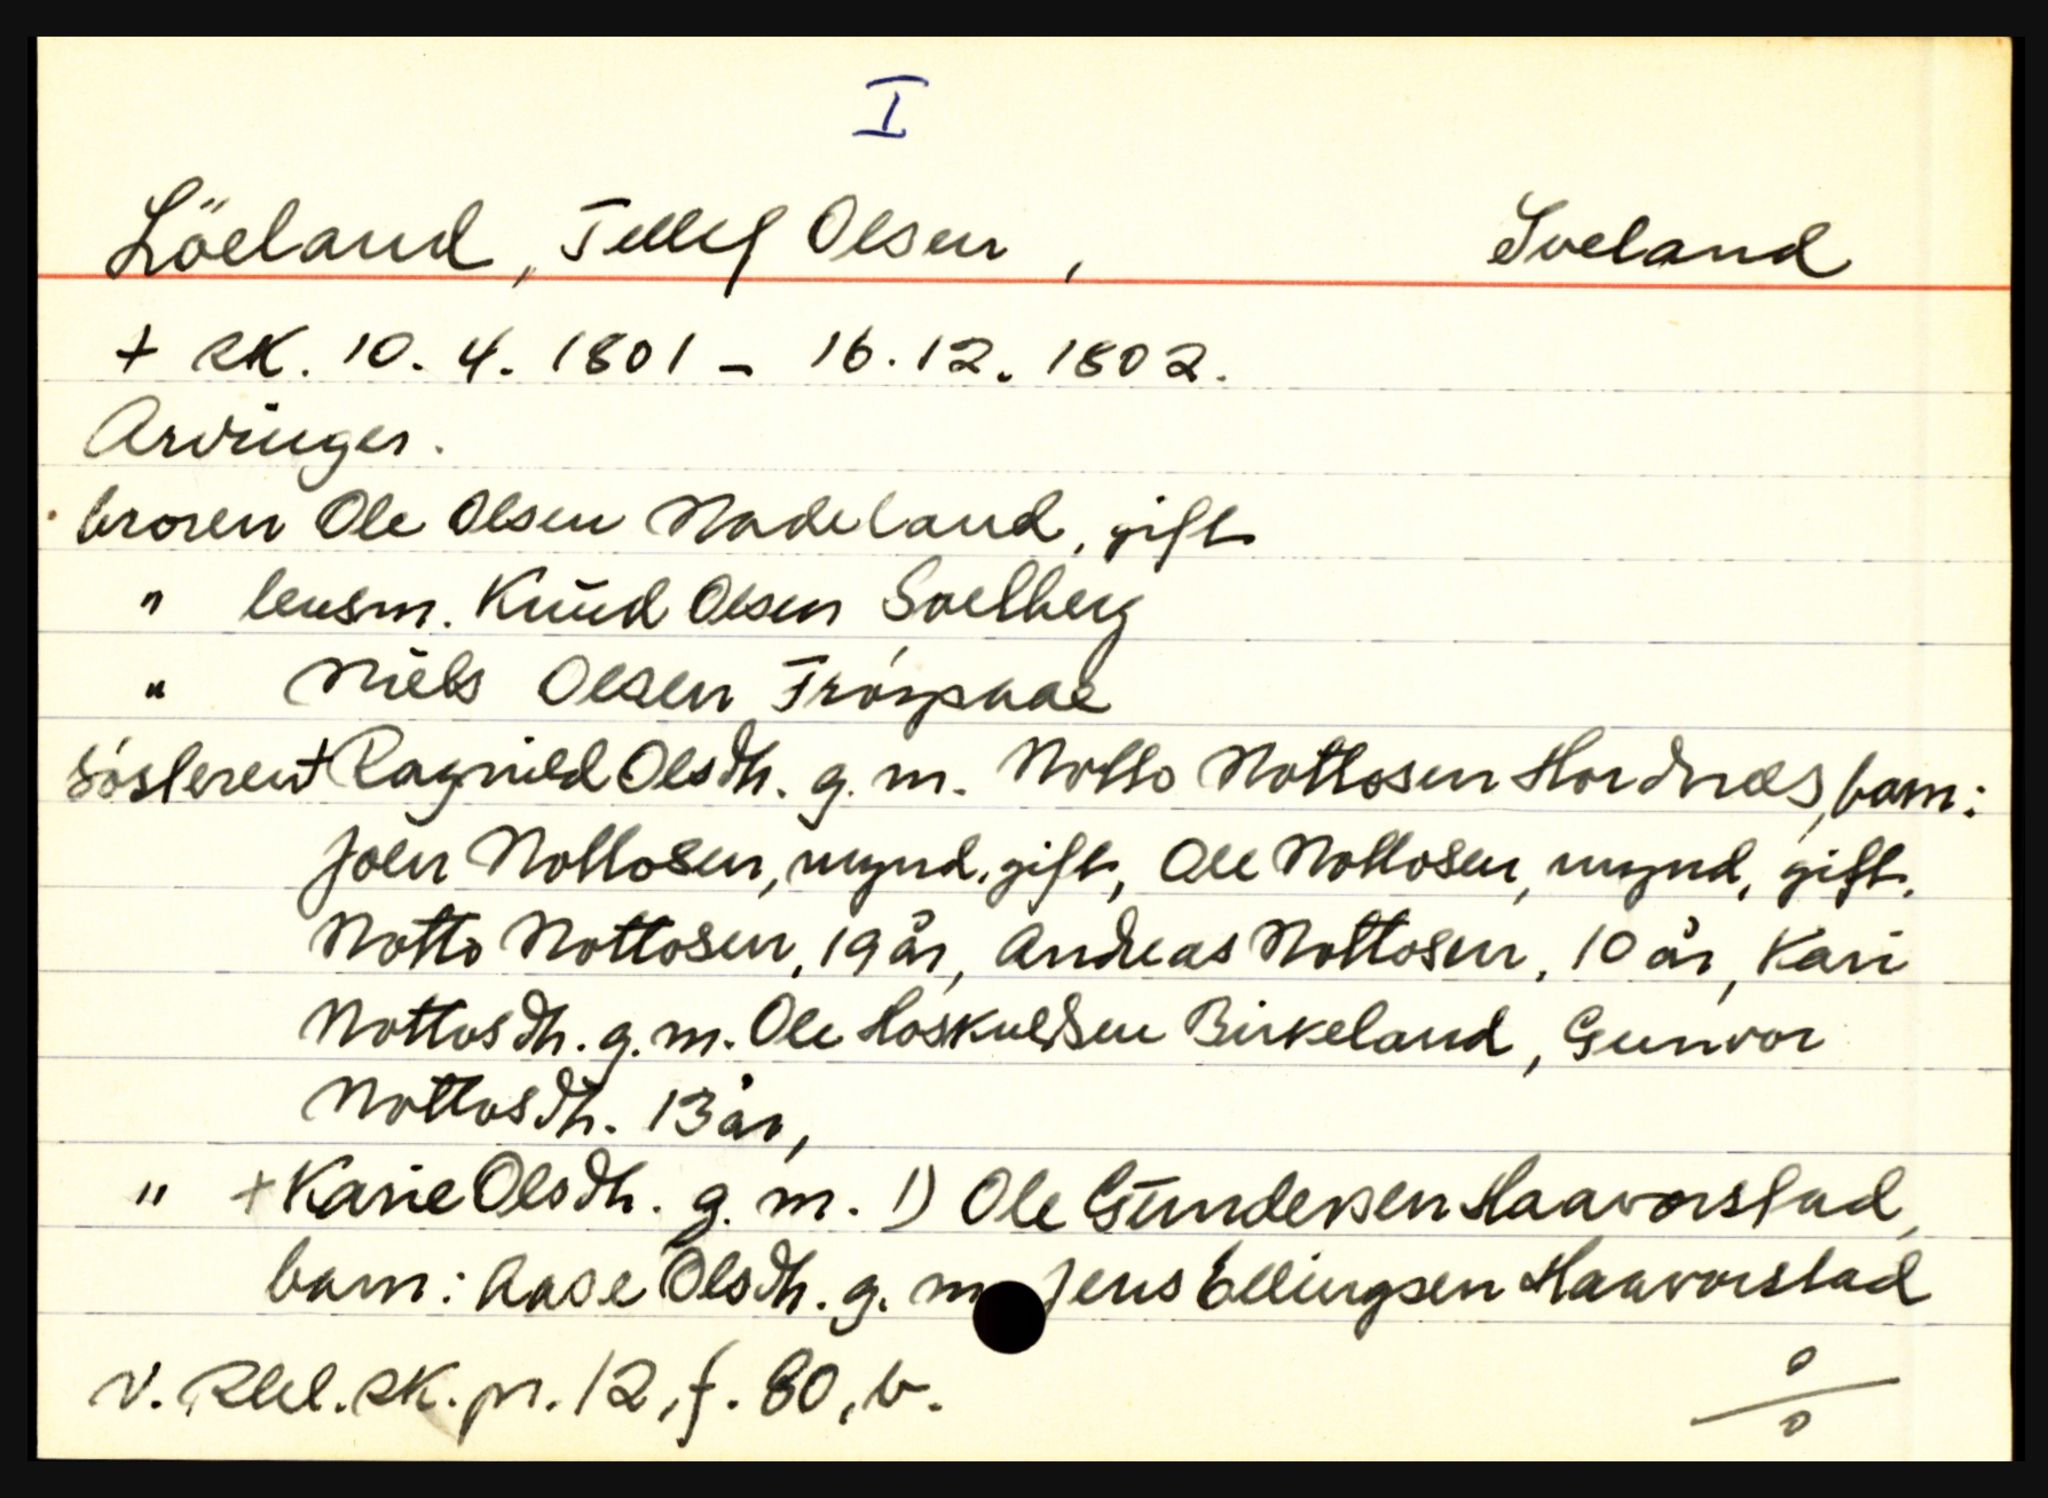 I
Löeland, Tellef Olsen, Sveland
+ sk. 10.4.1801 - 16.12.1802.
Arvinger.
broren Ole Olsen Nodeland, gift
" lensm. Knud Olsen Soelberg
" Niels Olsen Tróspaae
sósteren + Ragnild Olsdh. g. m. Notto Nottosen Hordnæs, barn:
Joen Nottosen, mynd. gift, Ole Nottosen, mynd, gift,
Notto Nottosen, 19 år, Andreas Nottosen, 10 år, Kari
Nottosdh. g. m. Ole Hoskuldsen Birkeland, Gunvor
Nottosdh. 13 år,
" + Karie Olsdh. g. m. 1) Ole Gundersen Haavorstad,
barn: Aase Olsdh. g. m. Jens Ellingsen Haavorstad
v. Rbl. sk. pr. 12, f. 80, b.